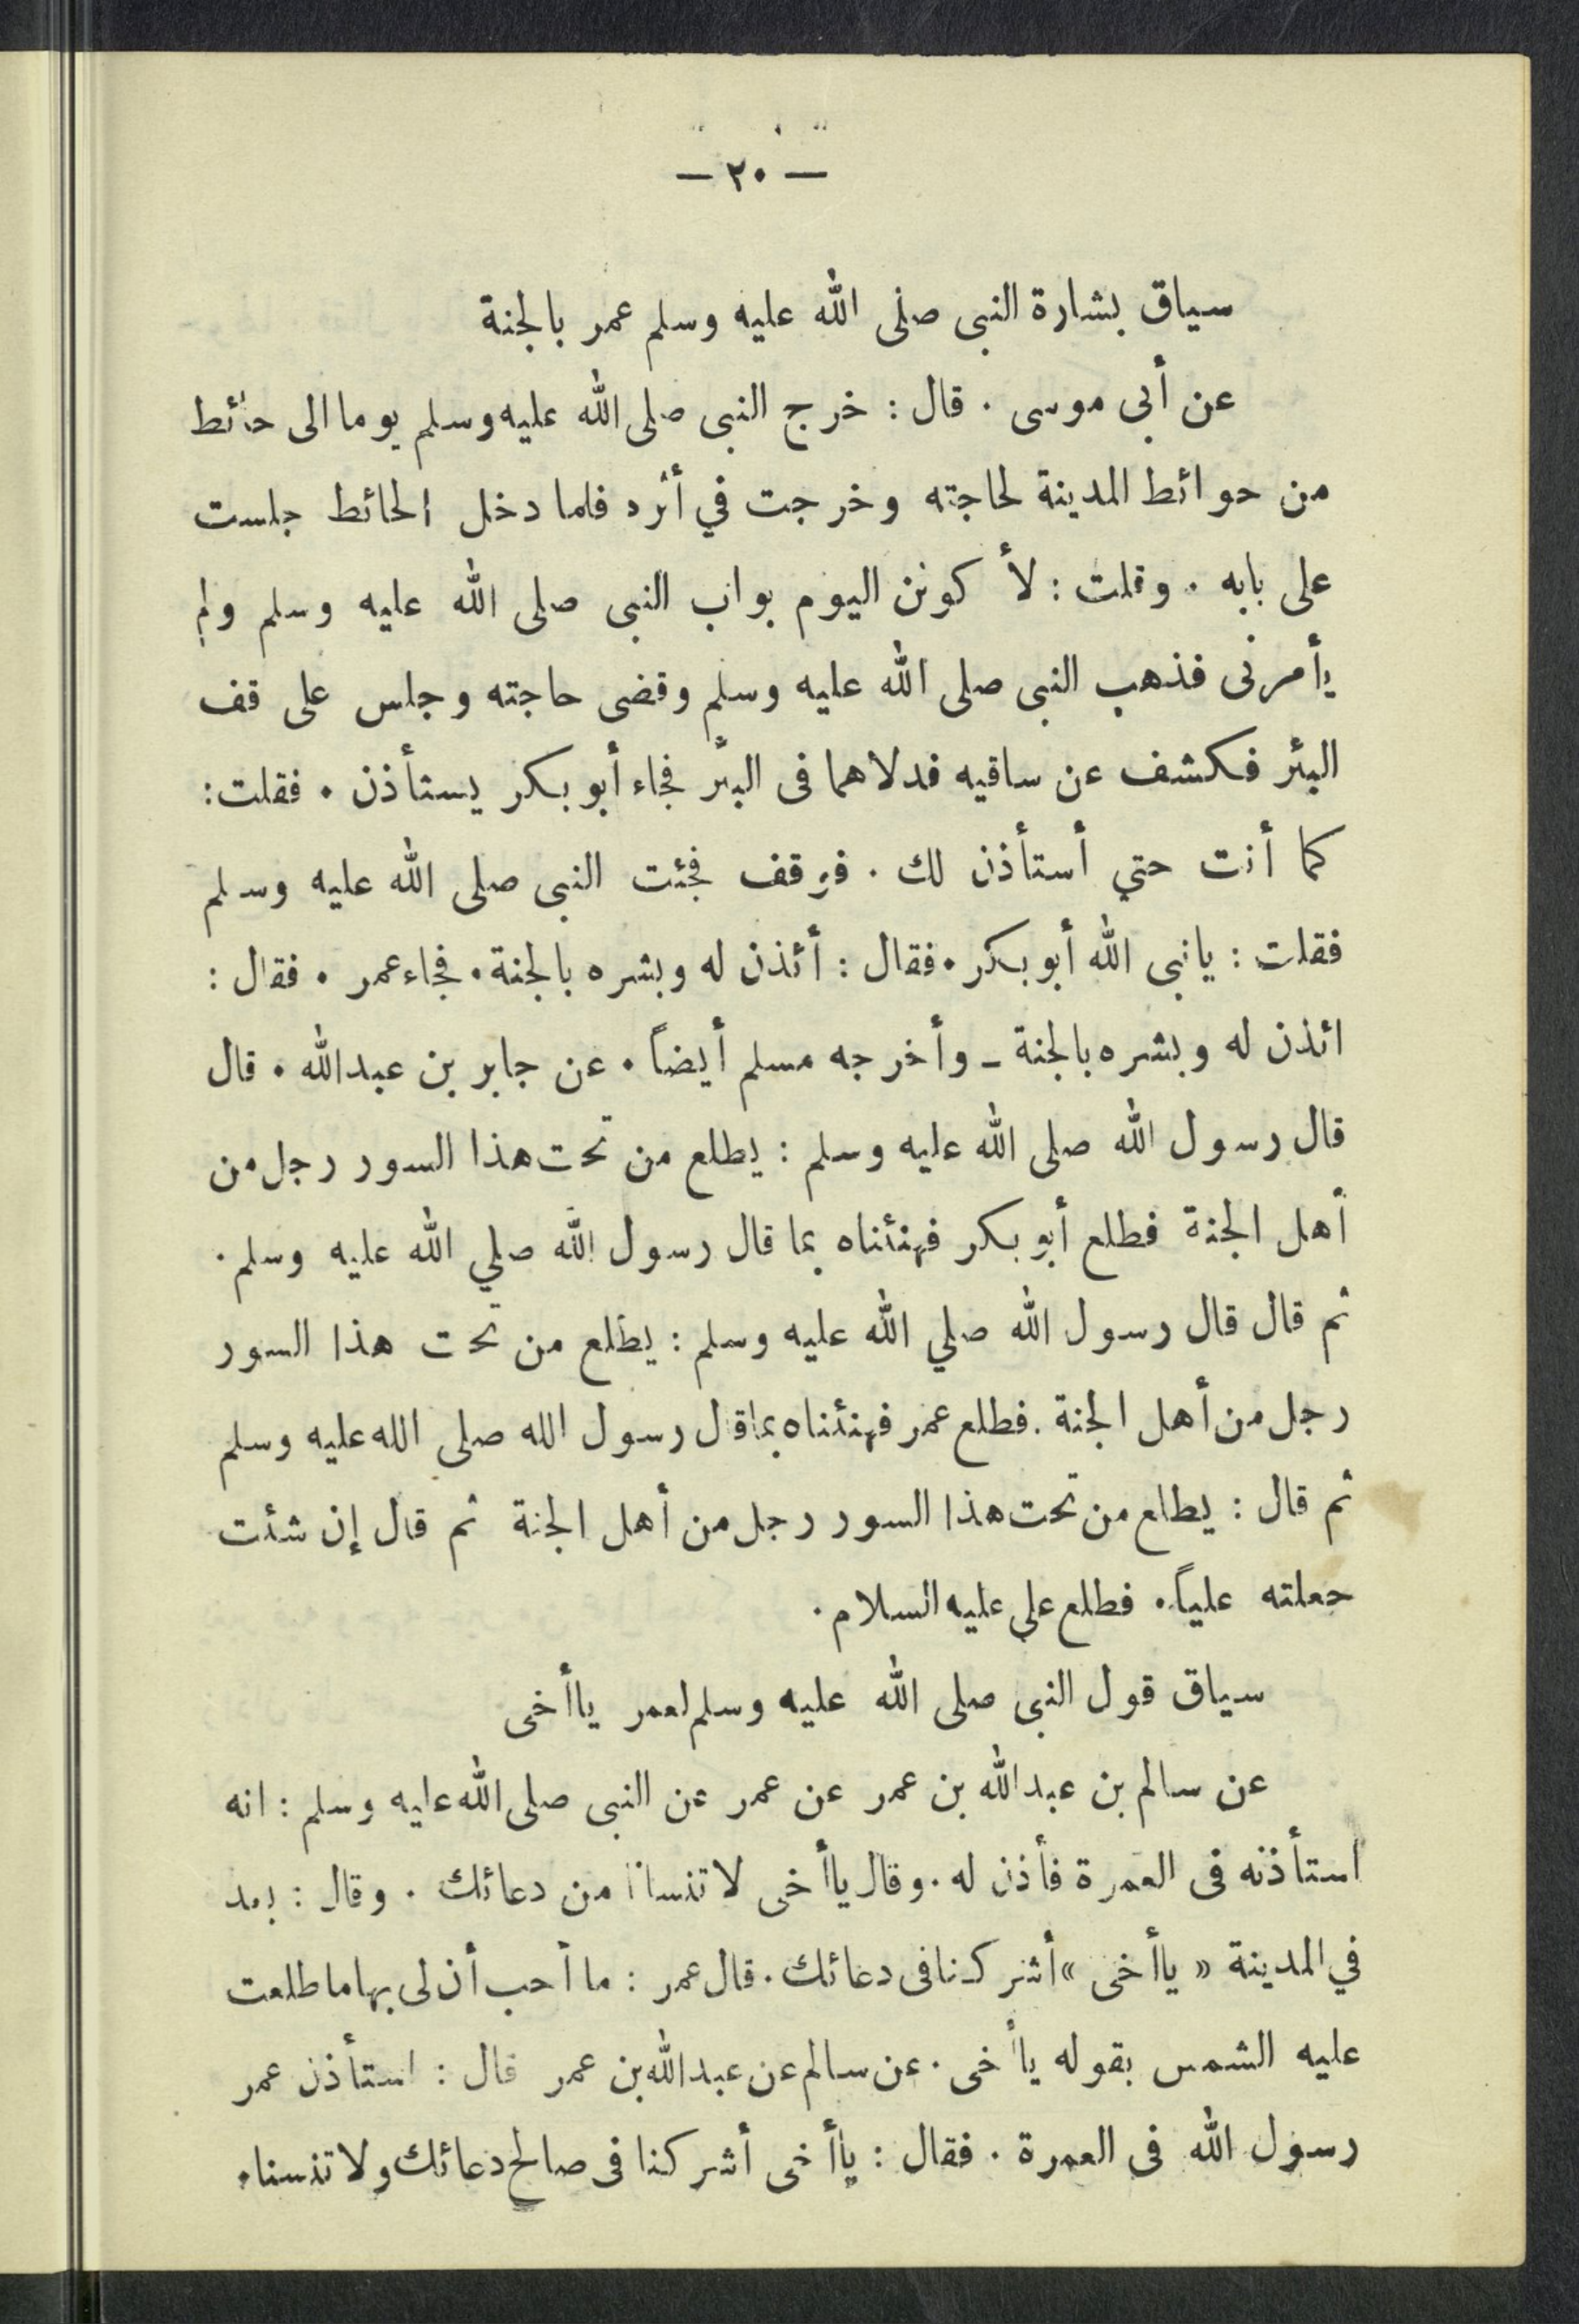 — ٢٠ —
سياق بشارة النبى صلى الله عليه وسلم عمر بالجنة
عن أبى موسى . قال : خرج النبى صلى الله عليه وسلم يوما الى حائط
من حوائط المدينة لحاجته وخرجت في أثره فلما دخل الحائط جلست
على بابه . وقلت : لأ كونن اليوم بواب النبى صلى الله عليه وسلم ولم
يأمرنى فذهب النبى صلى الله عليه وسلم وقضى حاجته وجلس على قف
البئر فكشف عن ساقيه فدلاهما فى البئر فجاء أبو بكر يستأذن . فقلت :
كما أنت حتي أستأذن لك . فوقف فجئت النبى صلى الله عليه وسلم
فقلت : يانبى الله أبو بكر . فقال : أئذن له وبشره بالجنة . فجاء عمر . فقال :
ائذن له وبشره بالجنة ـ وأخرجه مسلم أيضاً . عن جابر بن عبدالله . قال
قال رسول الله صلى الله عليه وسلم : يطلع من تحت هذا السور رجل من
أهل الجنة فطلع أبو بكر فهنئناه بما قال رسول الله صلي الله عليه وسلم .
ثم قال قال رسول الله صلي الله عليه وسلم : يطلع من تحت هذا السور
رجل من أهل الجنة . فطلع عمر فهنئناه بما قال رسول الله صلى الله عليه وسلم
ثم قال : يطلع من تحت هذا السور رجل من أهل الجنة ثم قال إن شئت
جعلته علياً . فطلع على عليه السلام .
سياق قول النبى صلى الله عليه وسلم لعمر ياأخى
عن سالم بن عبدالله بن عمر عن عمر عن النبى صلى الله عليه وسلم : انه
استأذنه فى العمرة فأذن له . وقال ياأخى لا تنسانا من دعائك . وقال : بعد
في المدينة « ياأخى » أشركنا فى دعائك . قال عمر : ما أحب أن لى بها ما طلعت
عليه الشمس بقوله ياأخى . عن سالم عن عبدالله بن عمر قال : استأذن عمر
رسول الله فى العمرة . فقال : ياأخى أشركنا فى صالح دعائك ولا تنسنا .